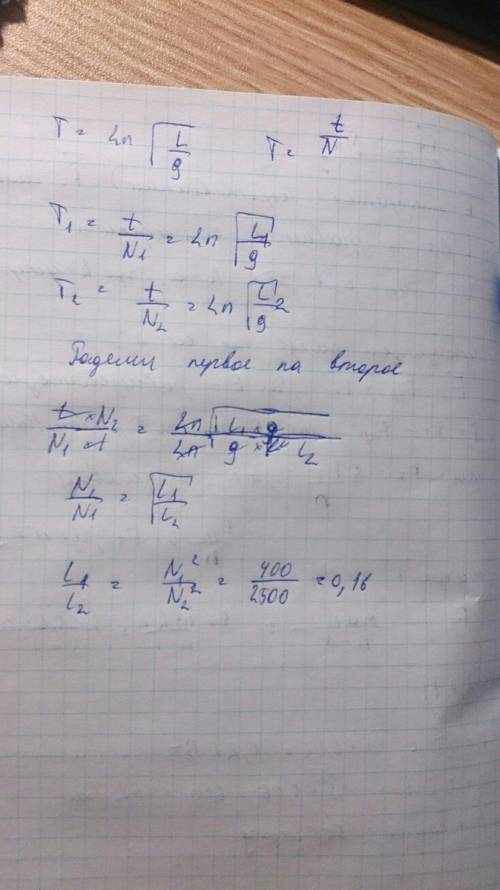 T = 2п √(L/g) T = t/N
T₁ = t/N₁ = 2п √(L₁/g)
T₂ = t/N₂ = 2п √(L₂/g)
Поделим первое на второе
t × N₂ / N₁ × t = 2п √(L₁ × g) / 2п √(g × L₂)
N₂/N₁ = √(L₁/L₂)
L₁/L₂ = N₁²/N₂² = 400/2500 = 0,16